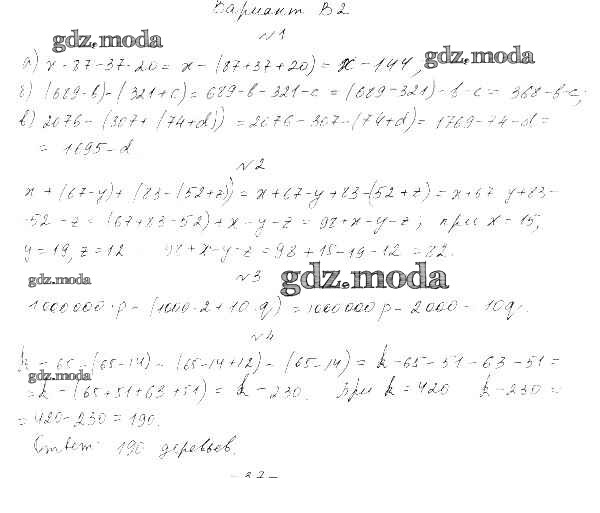 Вариант В2
№1
gdz.moda
а) x - 87 - 37 - 20 = x - (87 + 37 + 20) = x - 144;
gdz.moda
б) (689 - b) - (321 + c) = 689 - b - 321 - c = (689 - 321) - b - c = 368 - b - c;
в) 2076 - (307 + (74 + d)) = 2076 - 307 - (74 + d) = 1769 - 74 - d =
= 1695 - d
№2
x + (67 - y) + (83 - (52 + z)) = x + 67 - y + 83 - (52 + z) = x + 67 y + 83 -
- 52 - z = (67 + 83 - 52) + x - y - z = 98 + x - y - z; при x = 15,
y = 19, z = 12 98 + x - y - z = 98 + 15 - 19 - 12 = 82.
gdz.moda
№3
gdz.moda
1000000 · p - (1000 · 2 + 10 · q) = 1000000p - 2000 - 10q.
№4
k - 65 - (65 - 14) - (65 - 14 + 12) - (65 - 14) = k - 65 - 51 - 63 - 51 =
gdz.moda
= k - (65 + 51 + 63 + 51) = k - 230. При k = 420 k - 230 =
= 420 - 230 = 190.
Ответ: 190 деревьев.